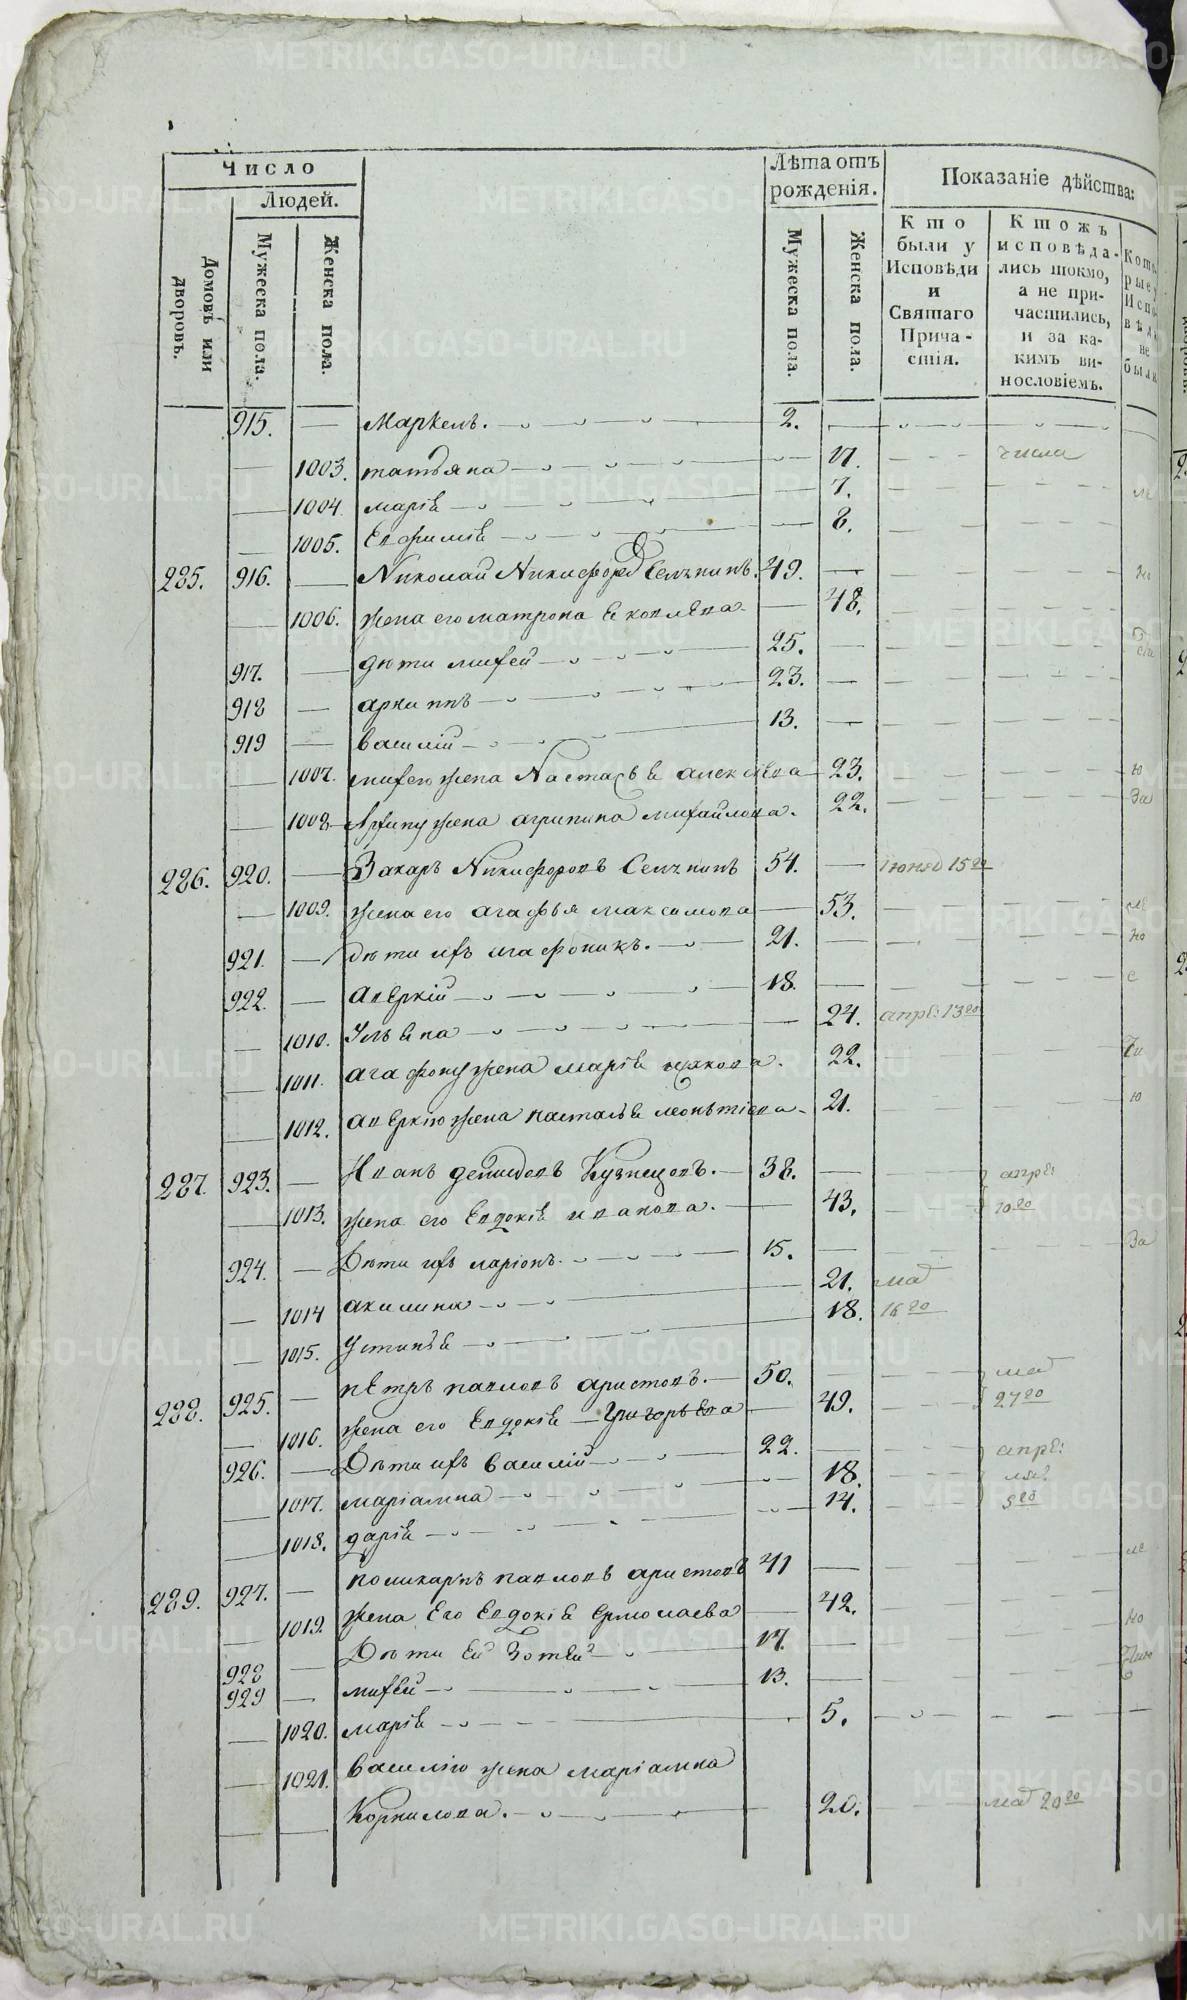 Число
Людей.
Домовъ или дворовъ.
Мужеска пола.
Женска пола.
Лѣта отъ рожденія.
Мужеска пола.
Женска пола.
Показаніе дѣйства:
Кто были у Исповѣди и Святаго Причастія.
Ктожъ исповѣдались токмо, а не причастились, и за какимъ винословіемъ.
Которые у Исповѣди не были
915. Маркелъ. 2.
1003. татьяна 11. числа
1004. марія 7.
1005. Евфимія 8.
285. 916. Николай Никифоровъ Селънинъ. 49.
1006. жена его матрона Яковлева 48.
917. дѣти михей 25.
918 архиппъ 23.
919 василій 13.
1007. михею жена Настасья алексѣева 23.
1008 Архипу жена агрипина михайлова. 22.
286. 920. Захаръ Никифоровъ Селънинъ 54. іюня 15го
1009. жена его агафья максимова 53.
921. дѣти ихъ агафоникъ. 21.
922. Аверкій 18.
1010. Ульяна 24. апрѣ: 13го
1011. агафону жена марія 22.
1012. аверкію жена настасья леонтіева 21.
287. 923. Иванъ демидовъ Кузнецовъ. 38. апрѣ:
1013. жена его Евдокія иванова. 43. 10го
924. Дѣти ихъ ларіонъ. 15.
1014 акилина 21. мая
1015. Устинья 18. 16го
288. 925. пЕтръ павловъ аристовъ. 50. мая
1016. жена его Евдокія Григорьева 49. 27го
926. Дѣти ихъ василій 22. апрѣ:
1017. маріамна 18.
1018. дарія 14.
289. 927. поликарпъ павловъ аристовъ 41
1019. жена Его Евдокія Ермолаева 42.
928 Дѣти Ей Зотѣй 17.
929 михей 13.
1020. марія 5.
1021. василію жена маріамна
Корнилова. 20. мая 20го
METRIKI.GASO-URAL.RU